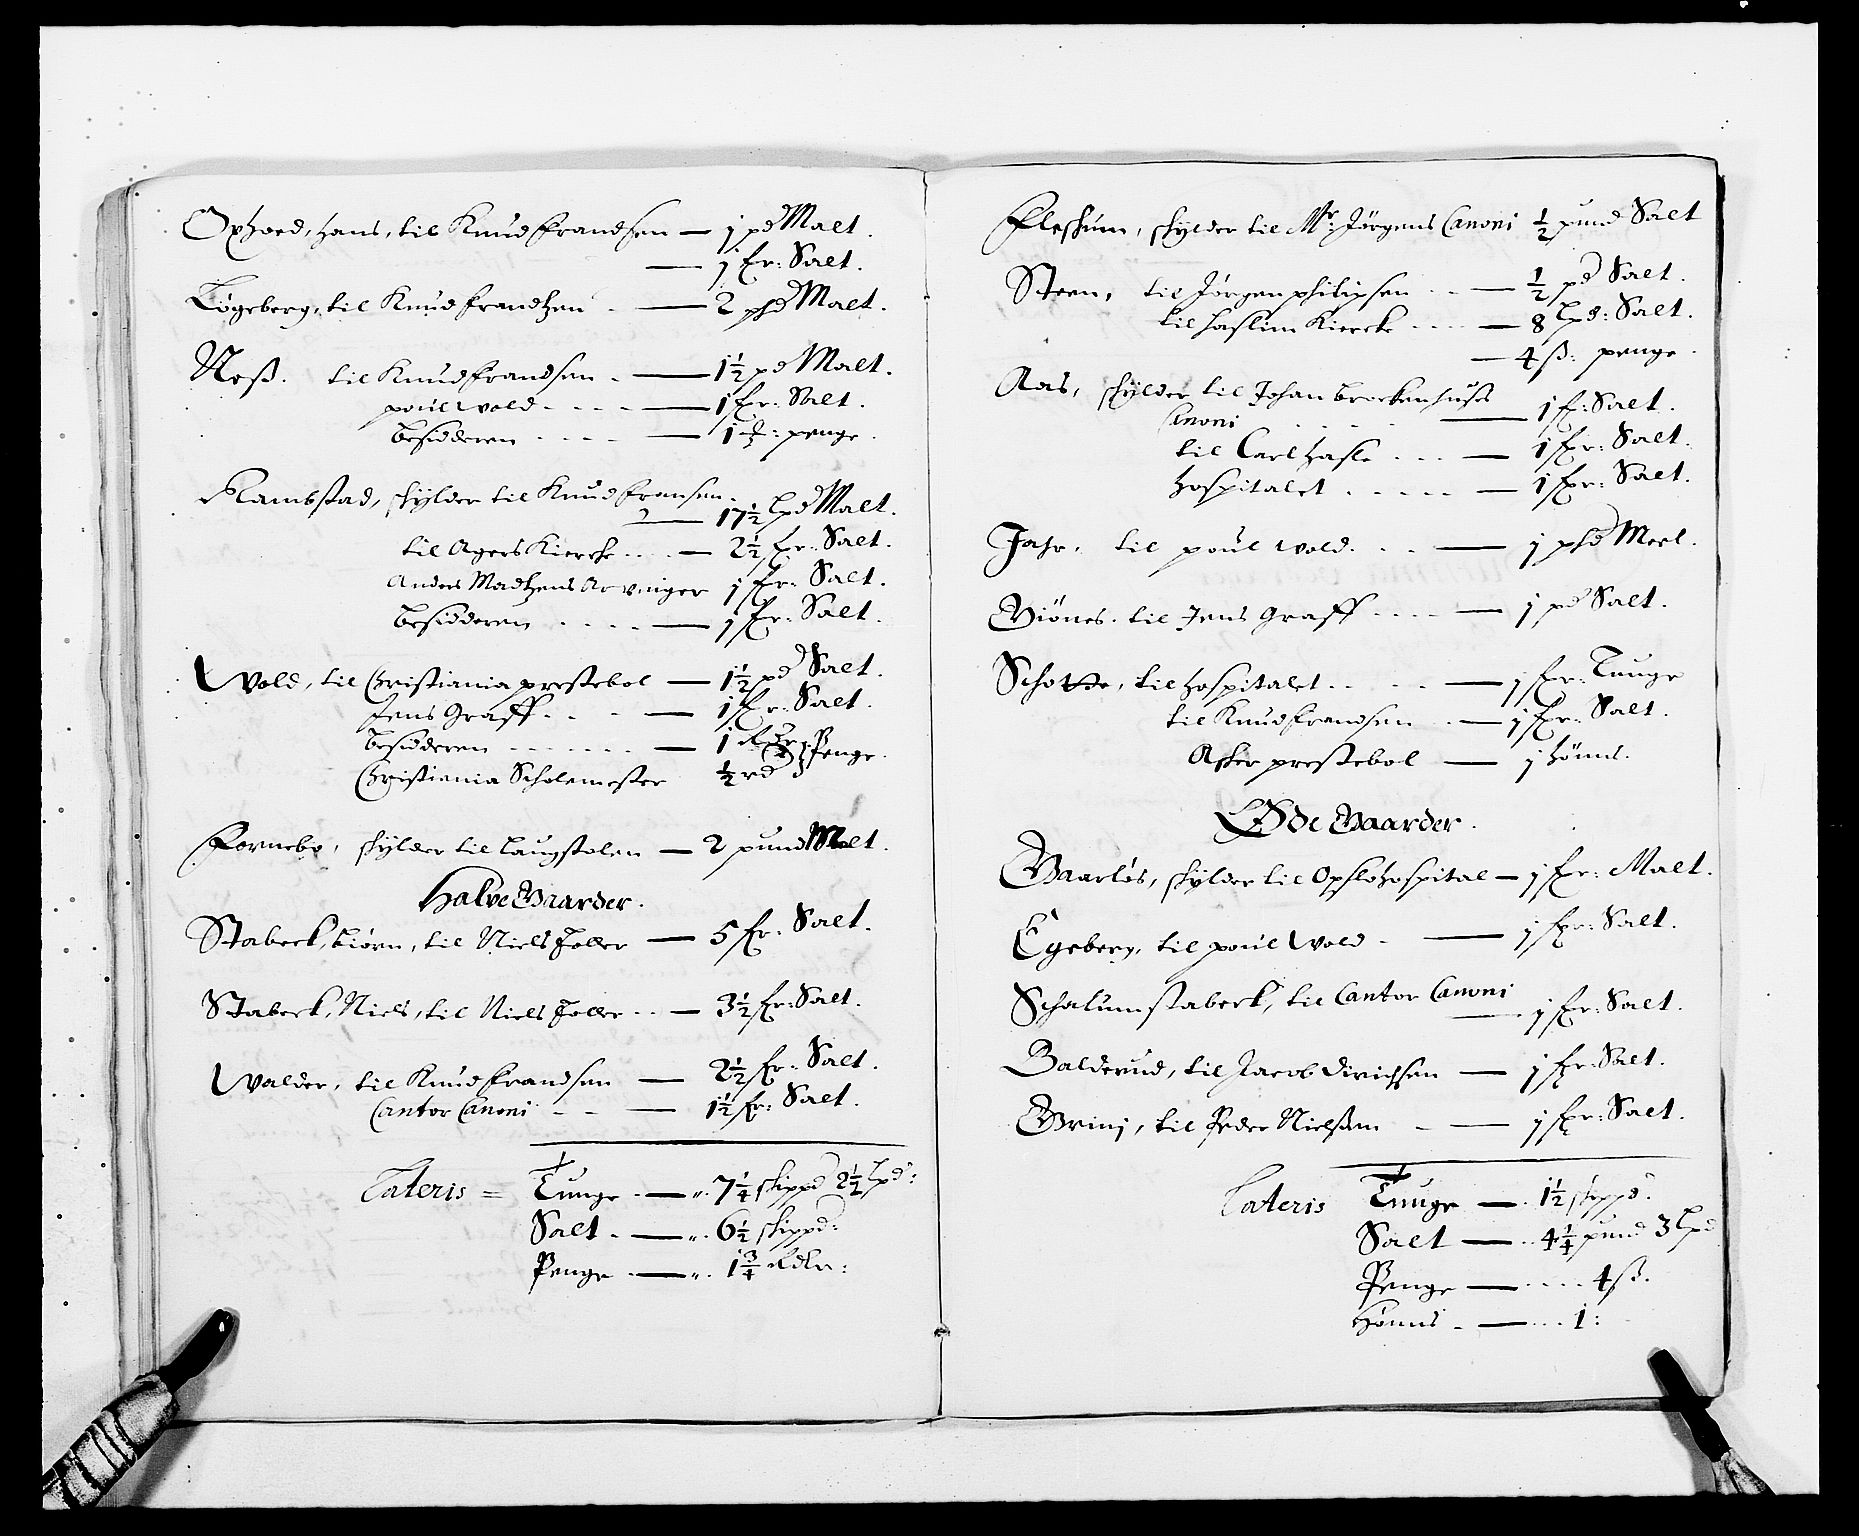 Ophoed, Hans, til Knud Frandsen — j pd Malt.
— j fr: Salt.
Løgeberg, til Knud Frandtzen — 2 phd Malt.
Neß. til Knud Frandsen — 1½ pd Malt.
poul Wold — 1 fr: Salt.
besidderen — 1 penge.
Rambstad, schylder til Knud Fransen.
— 17½ lpd Malt.
til Agers Kiercke — 2½ fr: Salt.
Anders Madtzens Arvinger j fr: Salt.
besidderen — j fr: Salt.
Wold, til Christiania prestebol — 1½ pd Salt.
Jens Graff — 1 fr: Salt.
besidderen — 1
Christiania Scholemester ½ rd Penge.
Fornebo, schylder til Laugstolen — 2 pund Malt.
Halve Gaarder.
Stabeck, biørn, til Niels Toller — 5 fr: Salt.
Stabeck, Niels, til Niels Toller — 3½ fr: Salt.
Walder, til Knud Frandsen — 2½ fr: Salt.
Cantor Canoni — 1½ fr: Salt.
Lateris = Tunge — „ 7¼ skippd 2½ lpd:
Salt — „ 6½ skippd:
Penge — „ 1¾ Rdlr:
Fleskum, schylder til Mr: Jørgens Canoni ½ pund Salt
Steen, til Jørgen philipsen — ½ pd Salt.
til Haslum Kiercke — 8 lpd: Salt.
— 4 ß: penge.
Aas, schylder til Johan Brockenhuses
Canoni — 1 f: Salt.
til Carl Hasle — 1 fr: Salt.
Hospitalet — 1 fr: Salt.
Jahr, til poul Wold — j phd Meel.
Giönes, til Jens Graff — j pd Salt.
Schotte, til Hospitalet — j fr: Tunge
til Knud Frandsen — j fr: Salt.
Asker prestebol — j hönns.
Øde Gaarder.
Gaarløs, schylder til Opslo Hospital — j fr: Malt.
Egeberg, til poul Wold — j fr: Salt.
Schalumstabeck, til Cantor Canoni
— j fr: Salt.
Balderud, til Jacob Dirichsen — j fr: Salt.
Grini, til Peder Nielsßen — j fr: Salt.
Lateris Tunge — 1½ skippd.
Salt — 4¼ pund 3 lpd
Penge — 4 ß.
Hönns — 1: